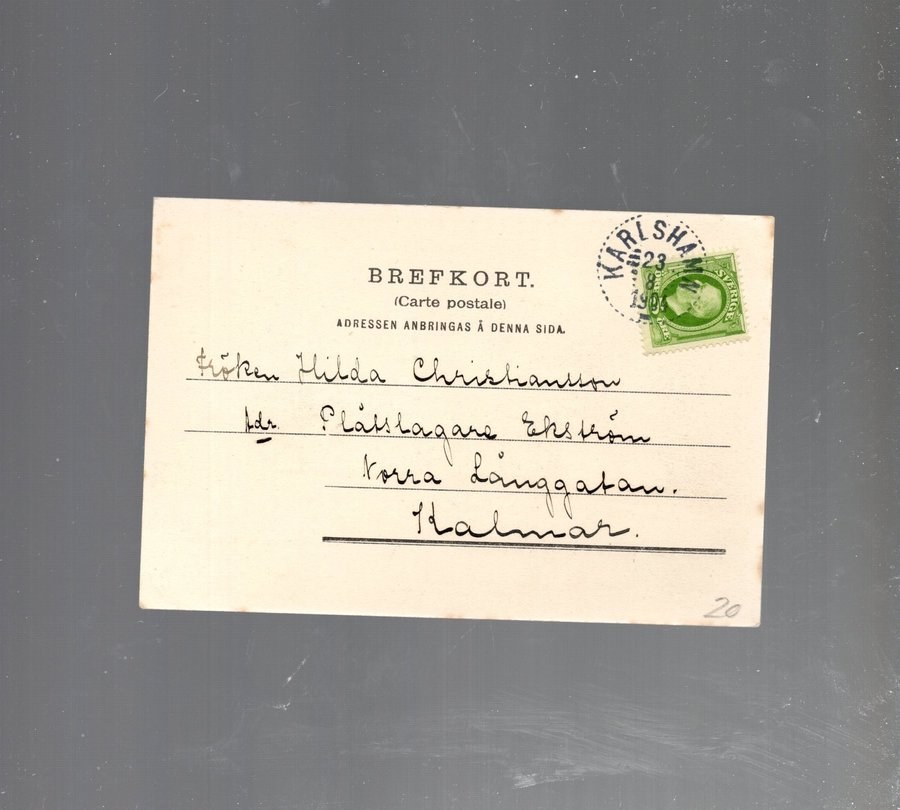 BREFKORT.
(Carte postale)
ADRESSEN ANBRINGAS Å DENNA SIDA.
KARLSHAMN
23
8
SVERIGE
Fröken Hilda Christiansson
Adr. Plåtslagare Ekström
Norra Långgatan.
Kalmar.
20